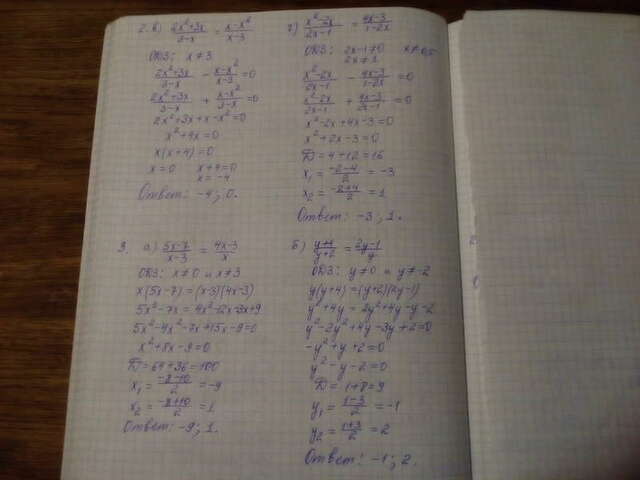 2. в) (2x²+3x)/(3-x) = (x-x²)/(x-3)
ОДЗ: x≠3
(2x²+3x)/(3-x) - (x-x²)/(x-3) =0
(2x²+3x)/(3-x) + (x-x²)/(3-x) =0
2x²+3x+x-x²=0
x²+4x=0
x(x+4)=0
x=0 x+4=0
x=-4
Ответ: -4; 0.
г) (x²-2x)/(2x-1) = (4x-3)/(1-2x)
ОДЗ: 2x-1≠0 x≠0,5
2x≠1
(x²-2x)/(2x-1) - (4x-3)/(1-2x) =0
(x²-2x)/(2x-1) + (4x-3)/(2x-1) =0
x²-2x+4x-3=0
x²+2x-3=0
D=4+12=16
x₁= (-2-4)/2 = -3
x₂= (-2+4)/2 = 1
Ответ: -3; 1.
3. а) (5x-7)/(x-3) = (4x-3)/x
ОДЗ: x≠0 и x≠3
x(5x-7)=(x-3)(4x-3)
5x²-7x=4x²-12x-3x+9
5x²-4x²-7x+15x-9=0
x²+8x-9=0
D=64+36=100
x₁= (-8-10)/2 = -9
x₂= (-8+10)/2 = 1
Ответ: -9; 1.
б) (y+4)/(y+2) = (2y-1)/y
ОДЗ: y≠0 и y≠-2
y(y+4)=(y+2)(2y-1)
y²+4y=2y²+4y-y-2
y²-2y²+4y-3y+2=0
-y²+y+2=0
y²-y-2=0
D=1+8=9
y₁= (1-3)/2 = -1
y₂= (1+3)/2 = 2
Ответ: -1; 2.